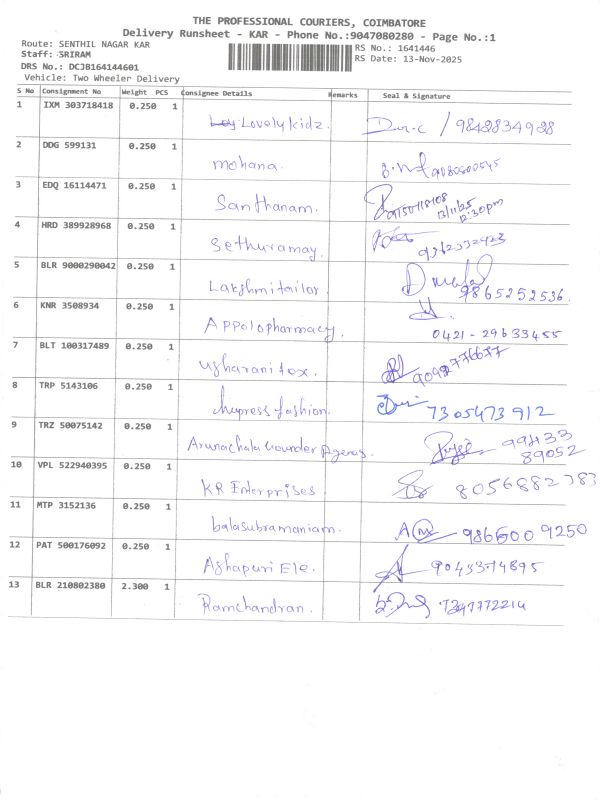 THE PROFESSIONAL COURIERS, COIMBATORE
Delivery Runsheet - KAR - Phone No.:9047080280 - Page No.:1
Route: SENTHIL NAGAR KAR RS No.: 1641446
Staff: SRIRAM RS Date: 13-Nov-2025
DRS No.: DCJB164144601
Vehicle: Two Wheeler Delivery
S No Consignment No Weight PCS Consignee Details Remarks Seal & Signature
1 IXM 303718418 0.250 1 Lovely kidz 9842834928
2 DDG 599131 0.250 1 mohana.
3 EDQ 16114471 0.250 1 Santhanam. 13/11/25 12:30pm
4 HRD 389928968 0.250 1 Sethuramay.
5 BLR 9000290042 0.250 1 Lakshmitailor 9865252536
6 KNR 3508934 0.250 1 Appolopharmacy. 0421-29633455
7 BLT 100317489 0.250 1 usharanitex.
8 TRP 5143106 0.250 1 fashion. 7305473912
9 TRZ 50075142 0.250 1 Arunachala Gounder Agenas. 99433
89052
10 VPL 522940395 0.250 1 KR Enterprises 8056882783
11 MTP 3152136 0.250 1 balasubramaniam. 986500 9250
12 PAT 500176092 0.250 1 Ashapuri Ele.
13 BLR 210802380 2.300 1 Ramchandran. 7247772214